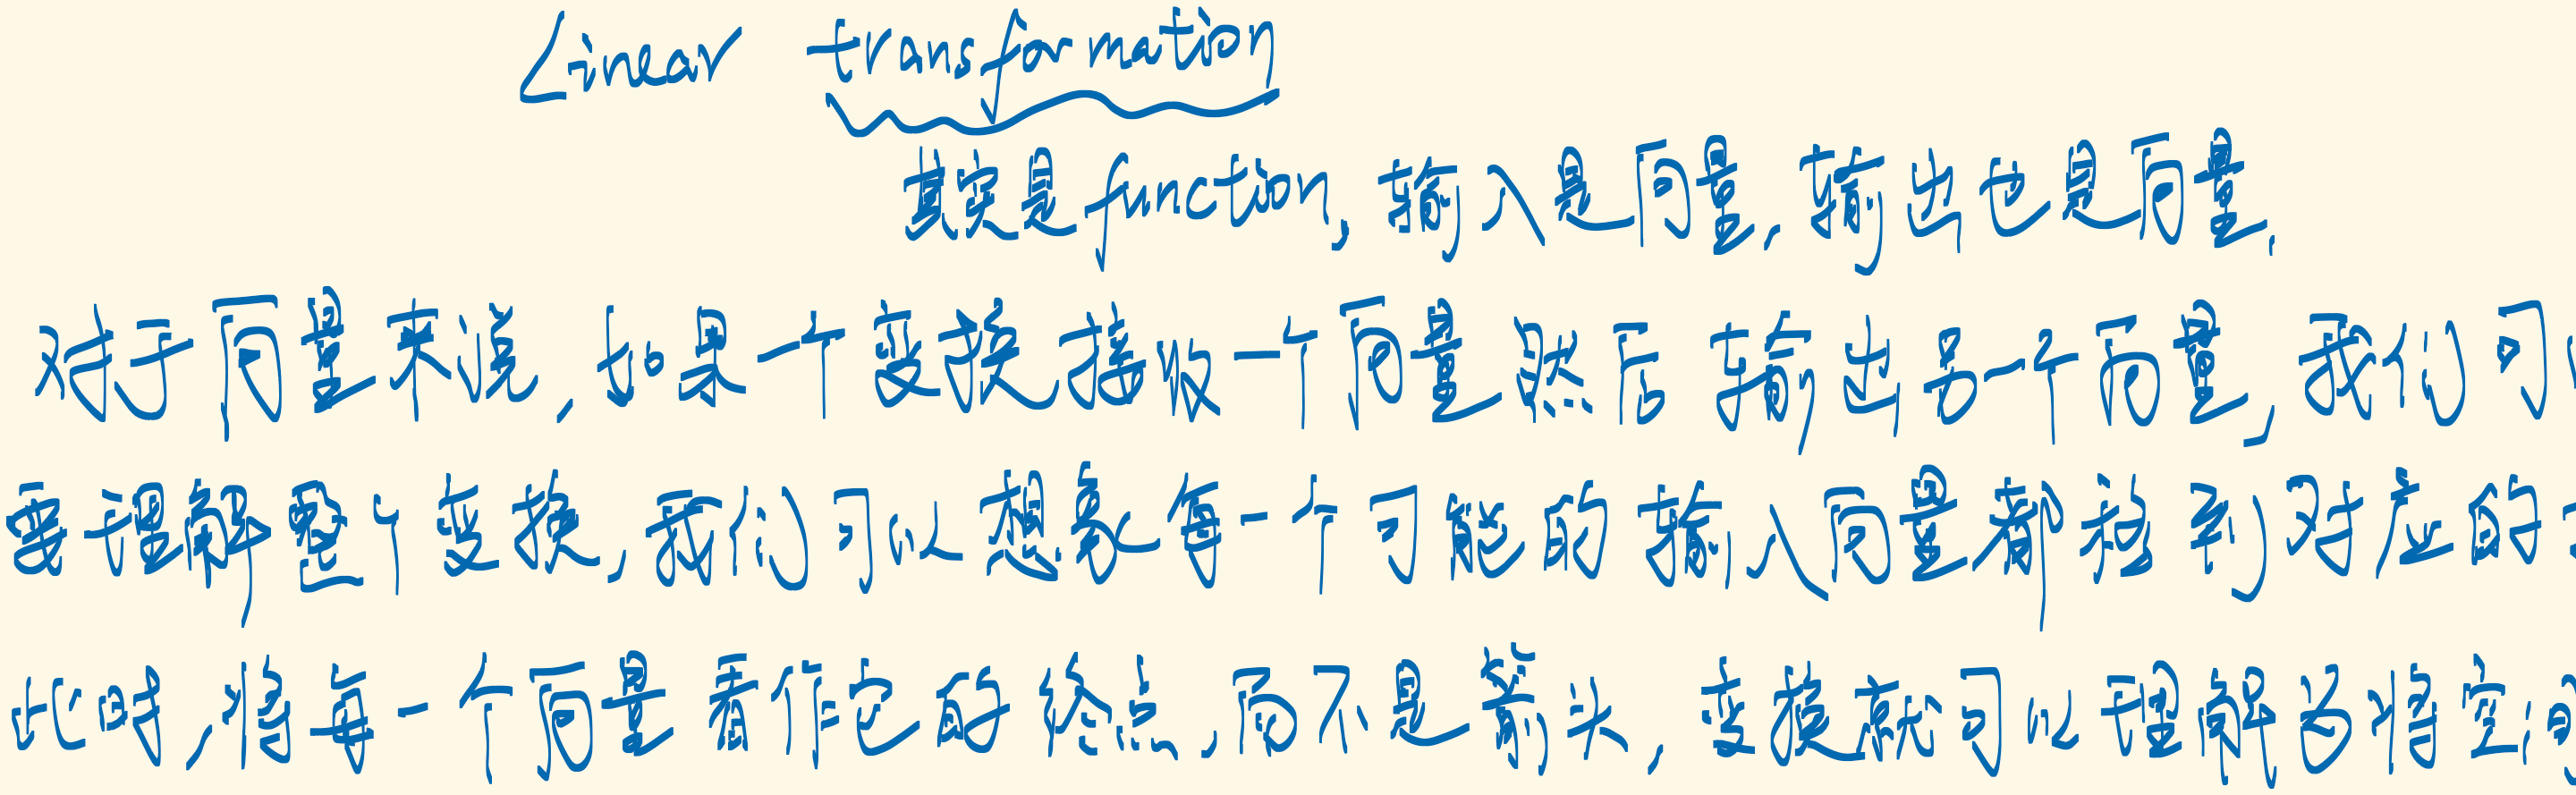 Linear transformation
其实是function, 输入是向量, 输出也是向量.
对于向量来说, 如果一个变换接收一个向量然后输出另一个向量, 我们可
要理解整个变换, 我们可以想象每一个可能的输入向量都移到对应的
此时, 将每一个向量看作它的终点, 而不是箭头, 变换就可以理解为将空间